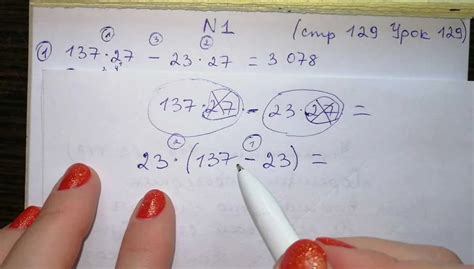 N1
(стр 129 Урок 129)
① 137 · 27 - 23 · 27 = 3 078
137 · 27 - 23 · 27 =
23 · (137 - 23) =